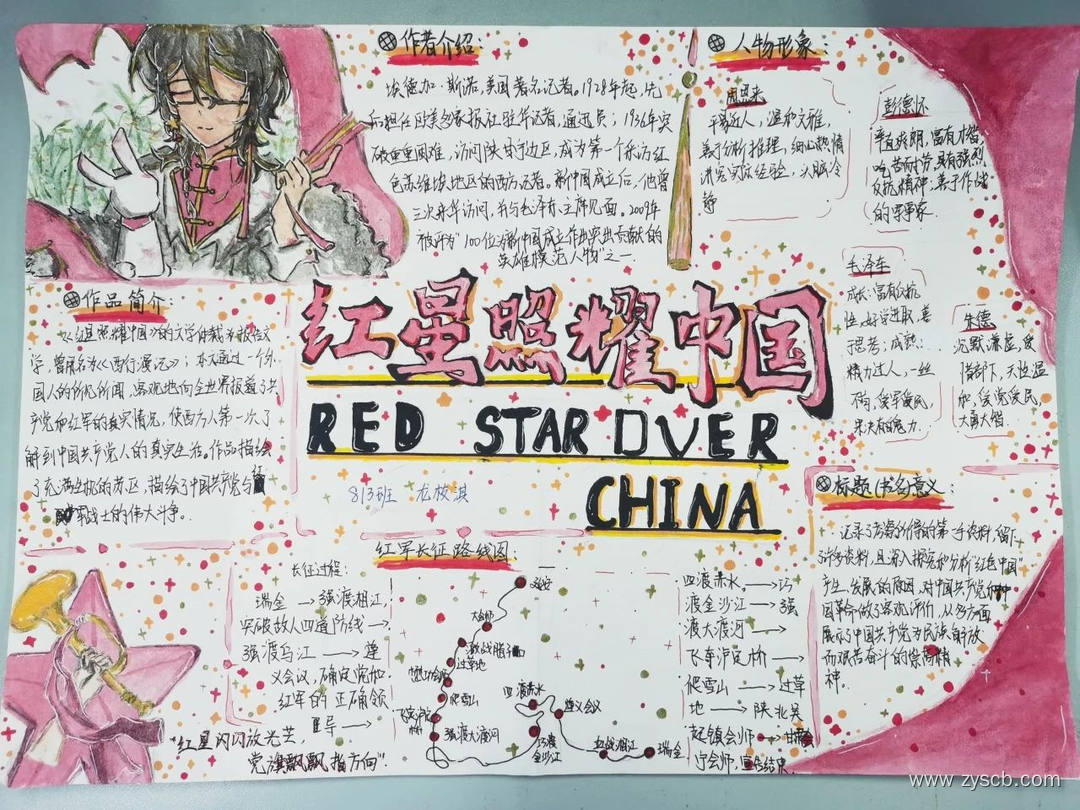 作者介绍:
埃德加·斯诺,美国著名记者。1928年起,先
后担任欧美多家报社驻华记者,通迅员;1936年突
破重重困难,访问陕甘宁边区,成为第一个采访红
色苏维埃地区的西方记者。新中国成立后,他曾
三次来华访问,并与毛泽东主席见面。2009年
被评为"100位为新中国成立作出突出贡献的
英雄模范人物"之一.
人物形象:
周恩来
平易近人,温和文雅,
善于分析推理,细心热情
讲究实际经验,头脑冷
静
彭德怀
率直爽朗,富有才智,
吃苦耐劳,具有强烈
反抗精神,善于作战
的军事家.
毛泽东
成长:富有反抗
性,好学进取,善
于思考;成熟:
精力过人,一丝
不苟,爱军爱民,
果决有魄力.
朱德
沉默谦虚,爱
惜部下,天性温
和,爱党爱民
大勇大智.
作品简介:
《红星照耀中国》的文学体裁为报告文
学,曾易名为《西行漫记》;本文通过一个外
国人的所见所闻,客观地向全世界报道了共
产党和红军的真实情况,使西方人第一次了
解到中国共产党人的真实生活。作品描绘
了充满生机的苏区,描绘了中国共产党与红
军战士的伟大斗争.
红星照耀中国
RED STAR OVER
CHINA
813班
标题(书名)意义:
记录了考察所得的第一手资料,留下
了许多资料,且深入探究和分析"红色中国"
产生、发展的原因,对中国共产党和中
国革命做了客观评价,从多方面
展示了中国共产党为民族解放
而艰苦奋斗的崇高精
神.
红军长征路线图:
长征过程:
瑞金→强渡湘江,
突破敌人四道防线→
强渡乌江→遵
义会议,确定党和
红军的正确领
导→
延安
过草地
爬雪山
强渡大渡河
四渡赤水
巧渡
金沙江
遵义会议
瑞金
四渡赤水→巧
渡金沙江→强
渡大渡河→
飞夺泸定桥→
爬雪山→过草
地→陕北吴
起镇会师→甘肃会
宁会师,宣告结束.
"红星闪闪放光芒,
党旗飘飘指方向".
www.zyscb.com